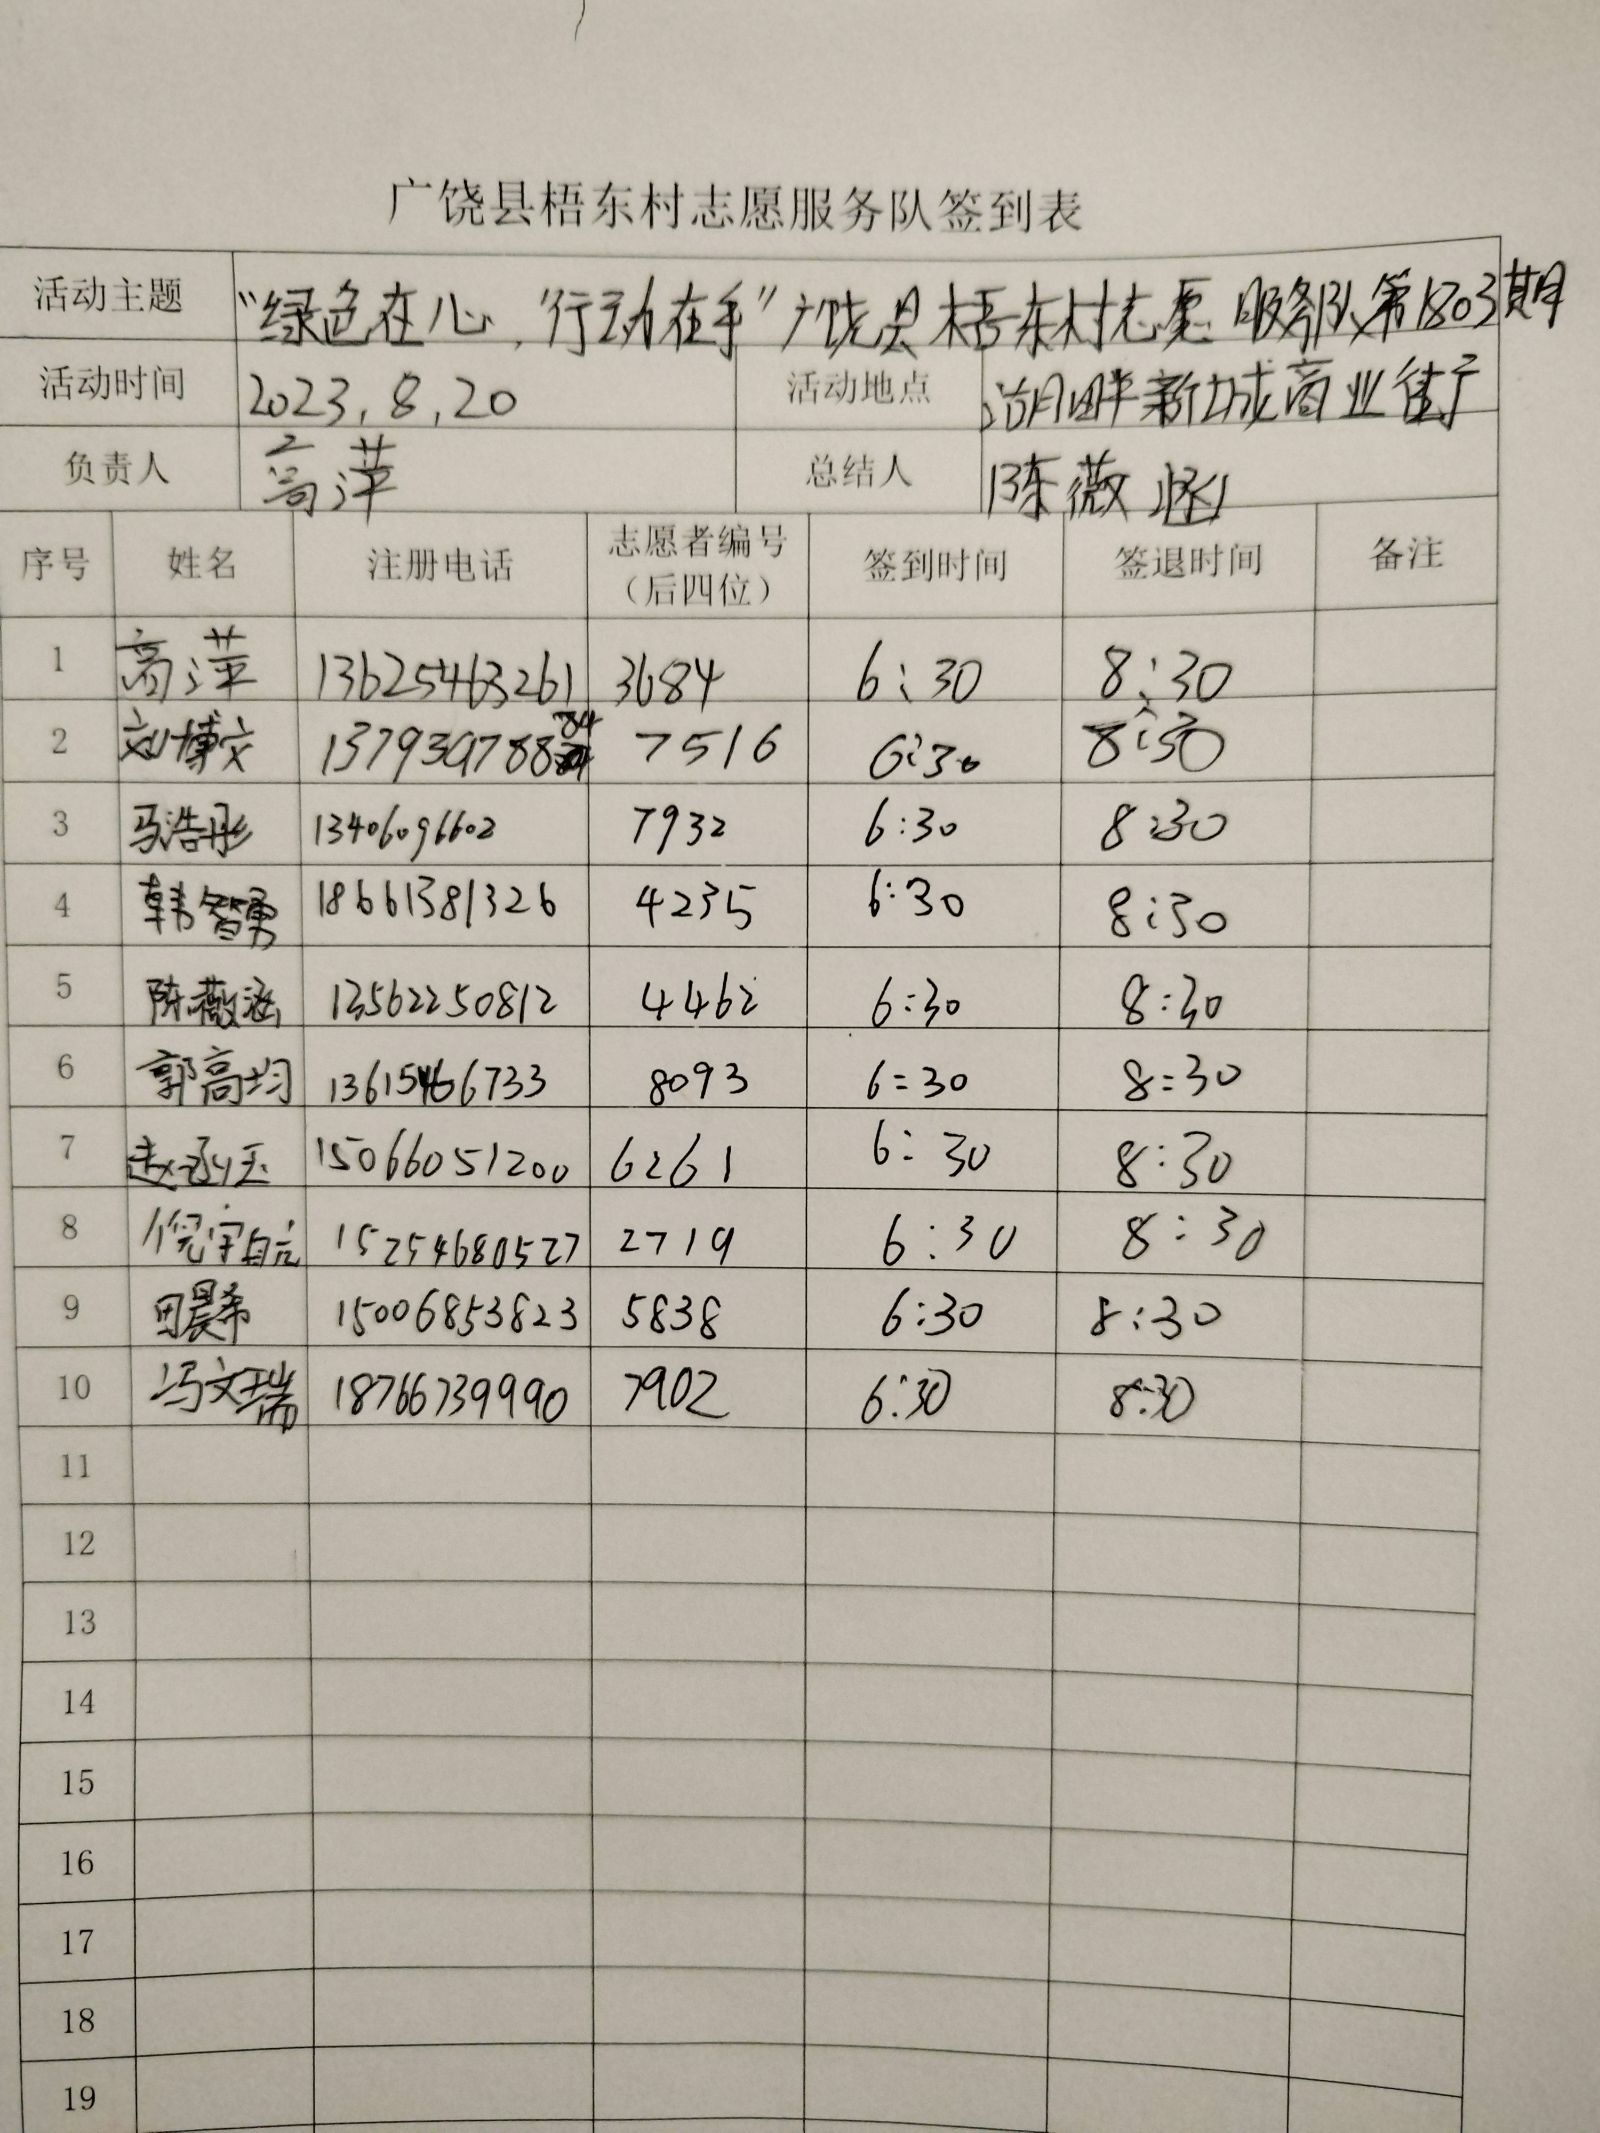 广饶县梧东村志愿服务队签到表
活动主题 "绿色在心,行动在手"广饶县梧东村志愿服务队第1803期
活动时间 2023.8.20 活动地点 湖畔新城商业街
负责人 高萍 总结人 陈薇涵
序号 姓名 注册电话 志愿者编号 签到时间 签退时间 备注
（后四位）
1 高萍 13625463261 3684 6:30 8:30
2 刘博文 13793978884 7516 6:30 8:30
3 马浩彤 13406096602 7932 6:30 8:30
4 韩智勇 18661381326 4235 6:30 8:30
5 陈薇涵 13562250812 4462 6:30 8:30
6 郭高均 13615466733 8093 6:30 8:30
7 赵函玉 15066051200 6261 6:30 8:30
8 倪宇 15254680527 2719 6:30 8:30
9 田晨希 15006853823 5838 6:30 8:30
10 冯文瑞 18766739990 7902 6:30 8:30
11
12
13
14
15
16
17
18
19